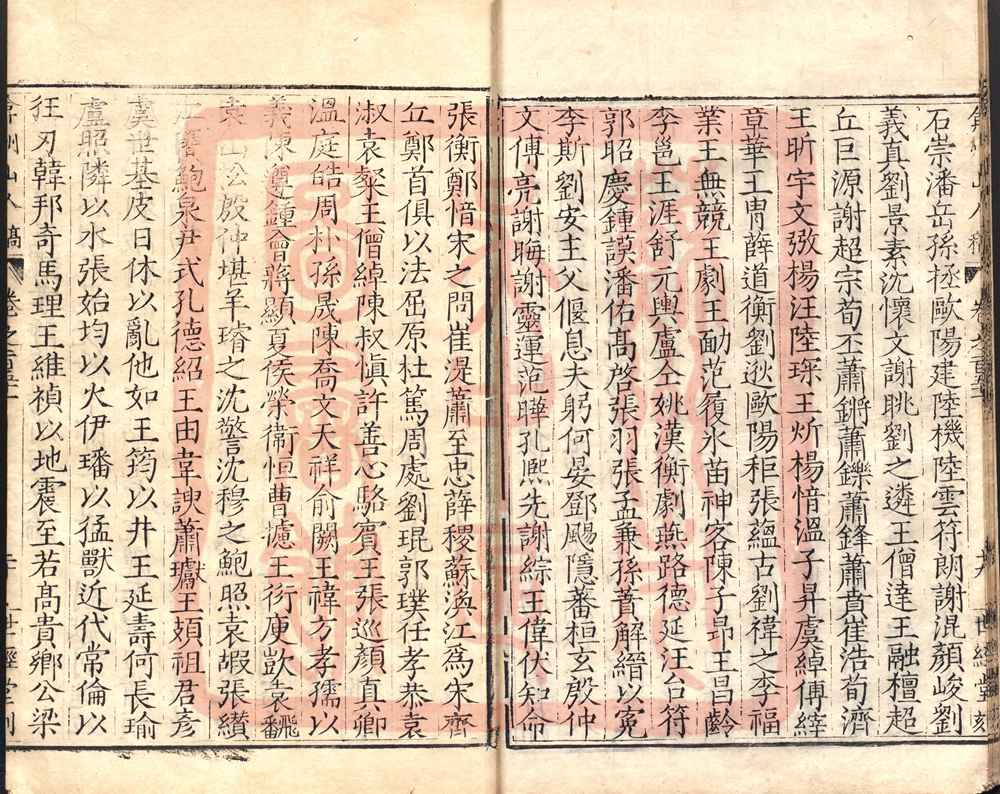 石崇潘岳孫拯歐陽建陸機陸雲符朗謝混顏峻劉
義真劉景素沈懷文謝眺劉之遴王僧達王融檀超
丘巨源謝超宗荀丕蕭鏘蕭鑠蕭鋒蕭賁崔浩荀濟
王昕宇文弢楊汪陸琛王炘楊愔溫子昇虞綽傅縡
章華王冑薛道衡劉逖歐陽秬張蘊古劉禕之李福
業王無競王劇王勔范履氷苗神客陳子昻王昌齡
李邕王涯舒元輿盧仝姚漢衡劇燕路德延汪台符
郭昭慶鍾謨潘佑髙啓張羽張孟兼孫蕡解縉以寃
李斯劉安主父偃息夫躬何晏鄧颺隱蕃桓玄殷仲
文傅亮謝晦謝靈運范曄孔熈先謝綜王偉伏知命
張衡鄭愔宋之問崔湜蕭至忠薛稷蘇渙江爲宋齊
丘鄭首俱以法屈原杜篤周處劉琨郭璞任孝恭袁
淑袁粲王僧綽陳叔愼許善心駱賓王張巡顏真卿
溫庭皓周朴孫晟陳喬文天祥俞闕王禕方孝孺以
義陳遵鍾會蔣顯夏侯榮衛恒曹攄王衍庾敳袁翻
袁山公殷仲堪羊璿之沈警沈穆之鮑照袁嘏張纘
鮑泉尹式孔德紹王由韋諛蕭瓛王頍祖君彥
虞世基皮日休以亂他如王筠以井王延壽何長瑜
盧照隣以水張始均以火伊璠以猛獸近代常倫以
狂刃韓邦奇馬理王維禎以地震至若髙貴鄉公梁
世經堂刻